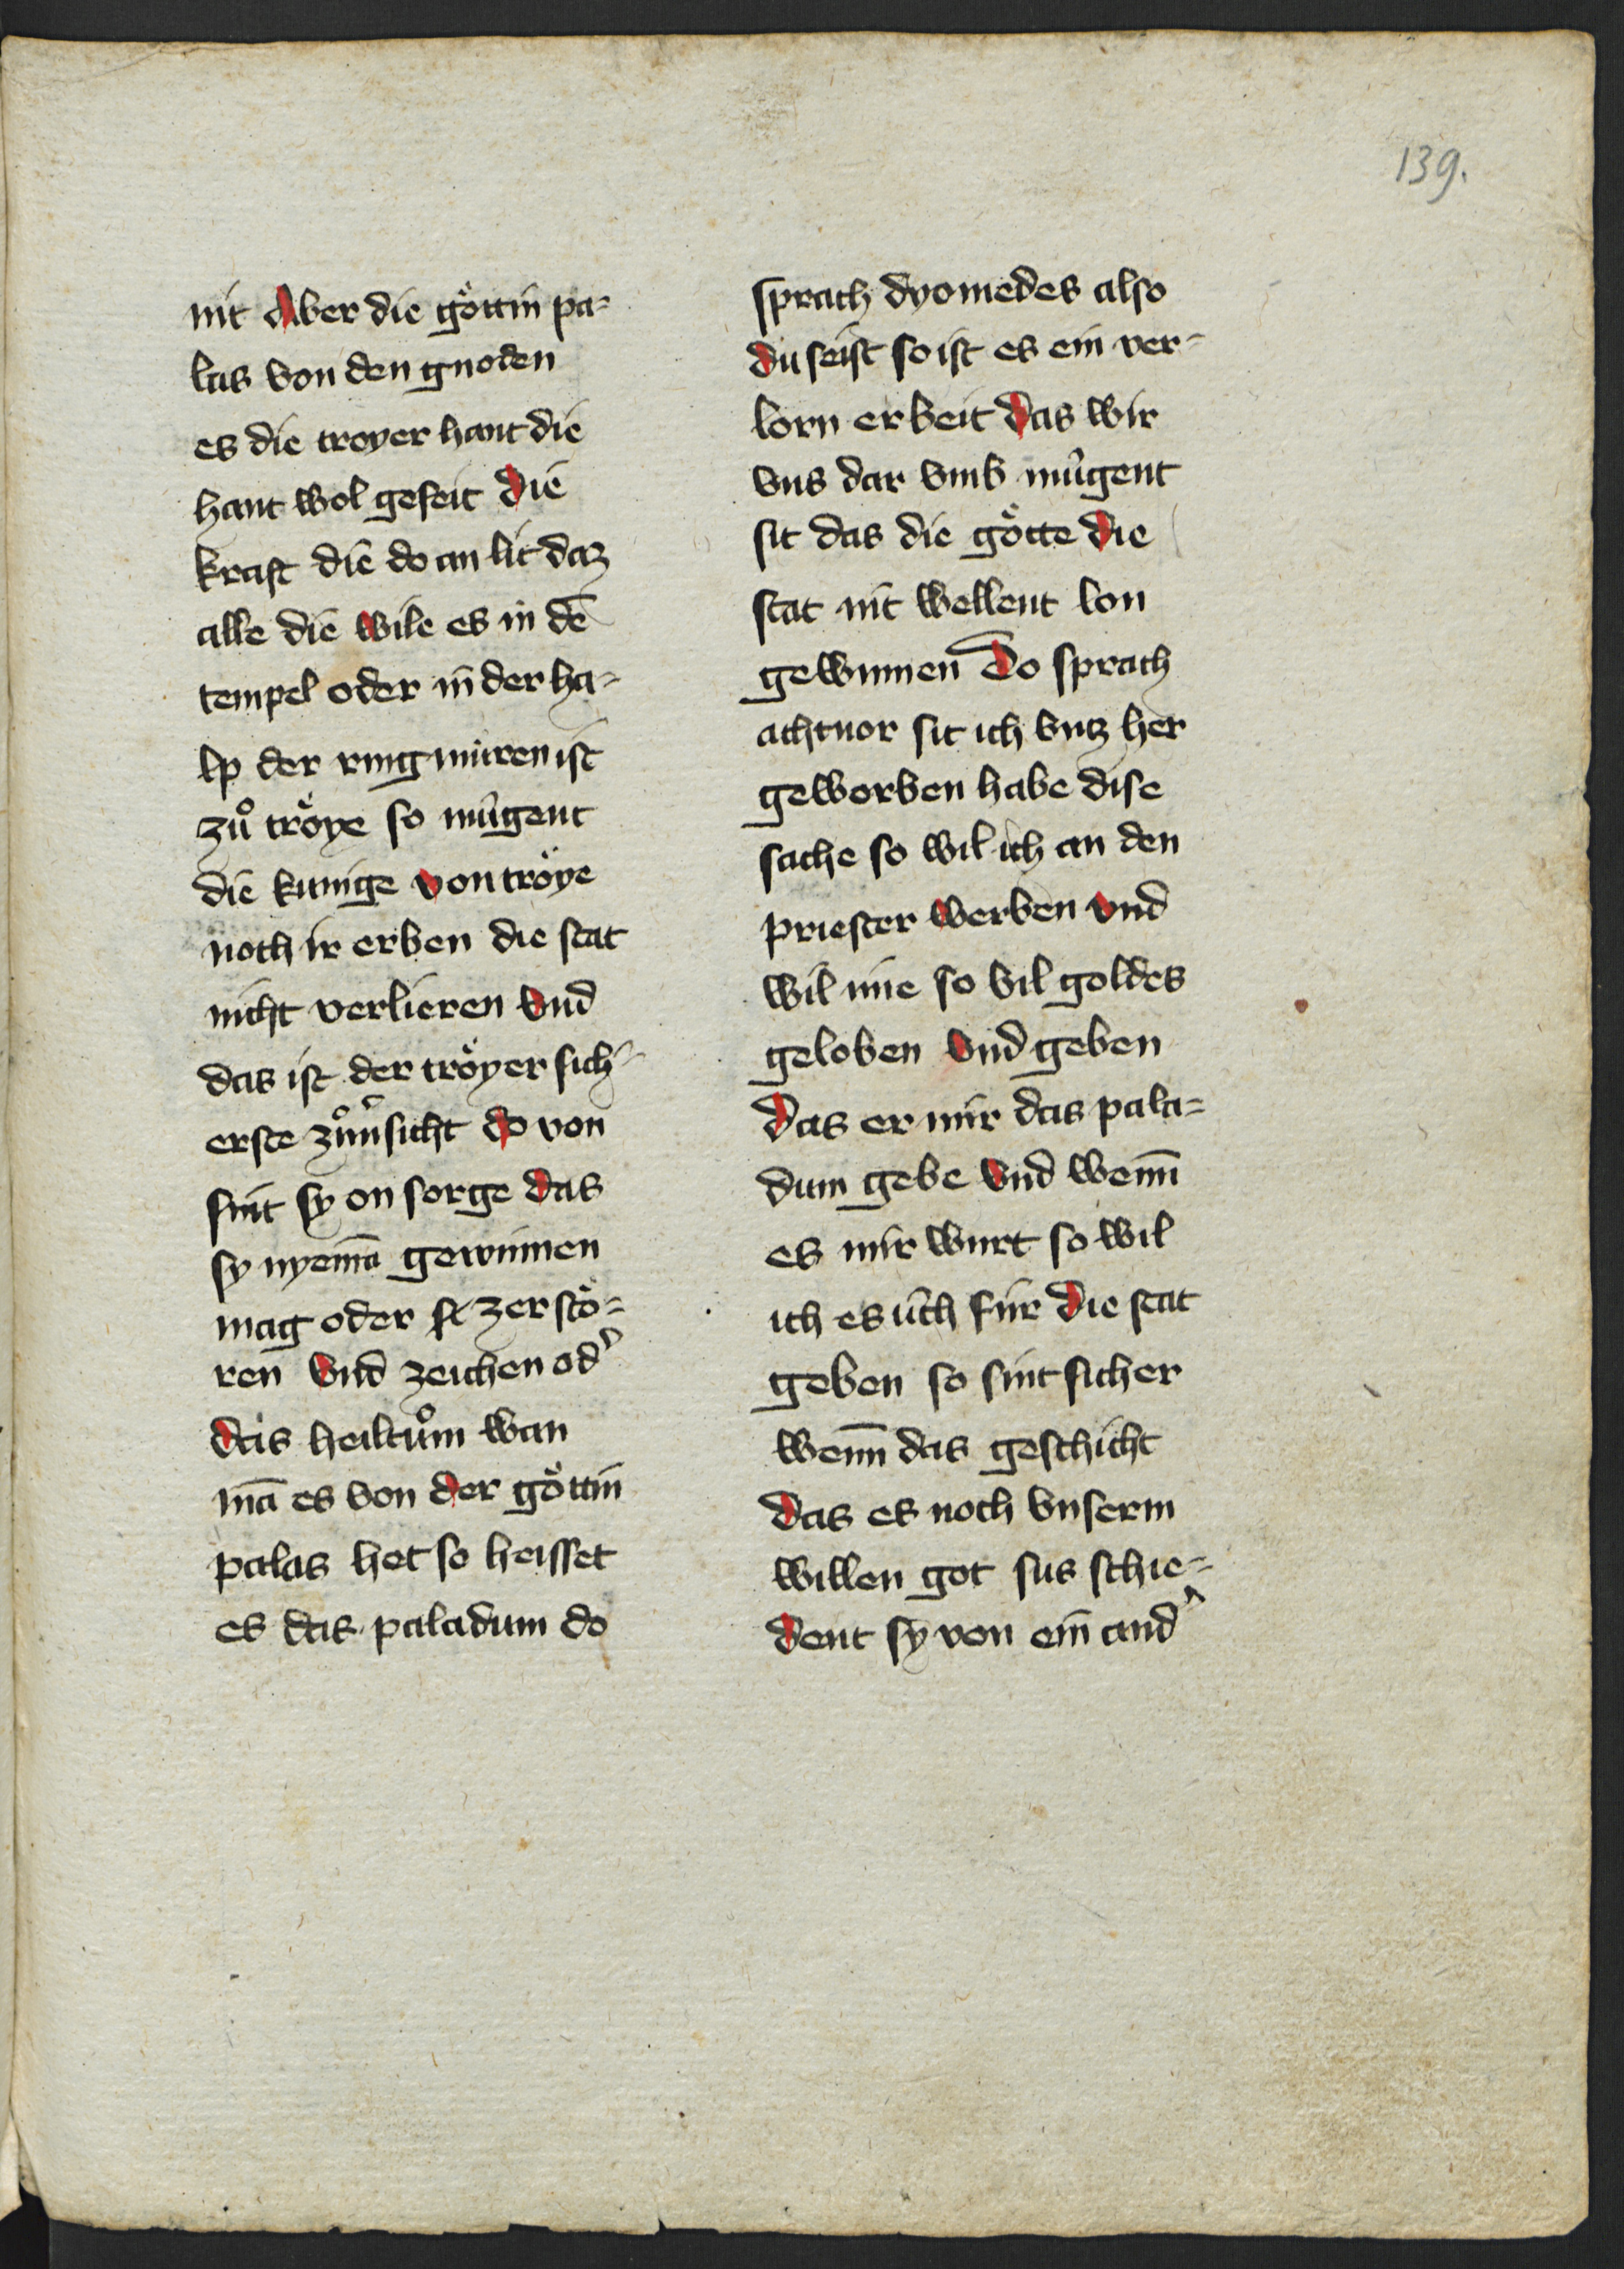 139.
nit Aber die göttin pa-
las von den gnoden
es die troyer hant die
hant wol geseit die
kraft die do an lit daz
alle die wile es in dē
tempel oder in der ha-
lp der ringmuren ist
zuͦ tröye so mügent
die kunige von tröye
noch ir erben die stat
nicht verlieren vnd
das ist der tröyer sich-
erste zuͦu̓sicht do von
sint sy on sorge das
sy nyemā gewinnen
mag oder zerstö-
ren vnd zeichen od̓
das heiltuͦm wan
mā es von der göttin
palas het so heisset
es das paladum do
sprach dyomedes also
du seist so ist es ein ver-
lorn erbeit das wir
vns dar vmb mügent
sit das die götte die
stat nit wellent lon
gewinnen Do sprach
achtnor sit ich vntz her
geworben habe dise
sache so wil ich an den
priester werben vnd
wil ime so vil goldes
geloben vnd geben
Das er mir das pala-
dum gebe vnd wenn̄
es mir wurt so wil
ich es üch für die stat
geben so sint sicher
wenn̄ das geschicht
das es noch vnserm
willen got sus schie-
dent sy von ein and̓